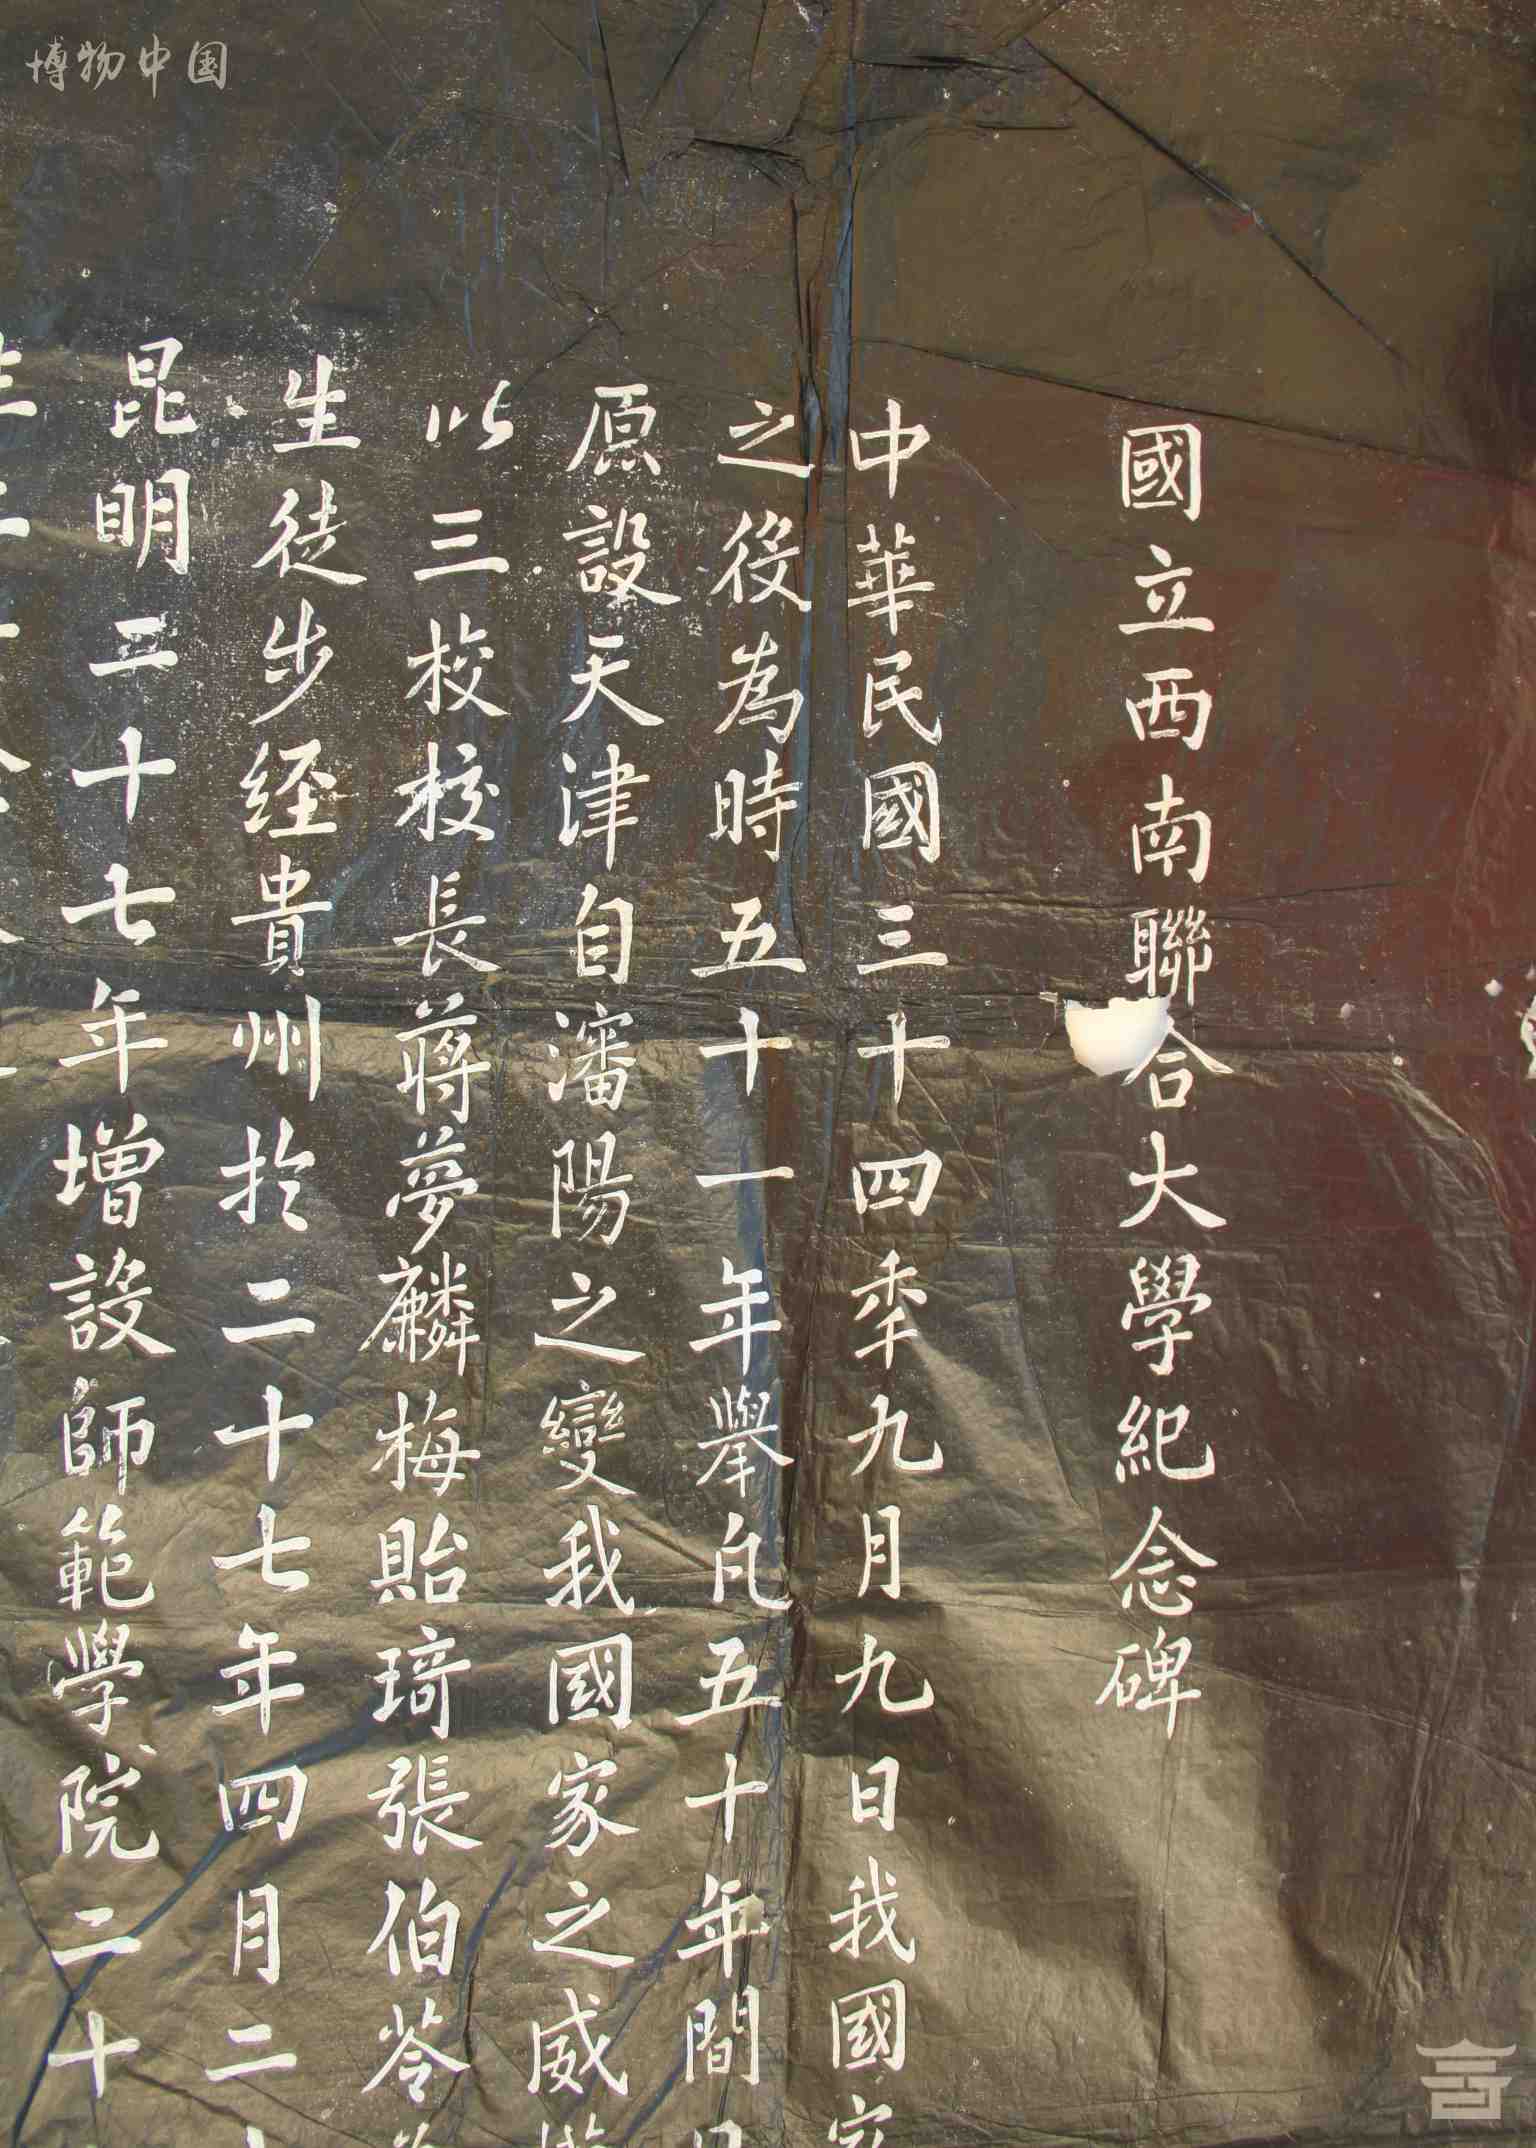 博物中国
國立西南聯合大學紀念碑
中華民國三十四秊九月九日我國家
之役為時五十一年舉凡五十年間日
原設天津自瀋陽之變我國家之威
以三校校長蔣夢麟梅貽琦張伯苓
生徒步經貴州於二十七年四月二
昆明二十七年增設師範學院二十